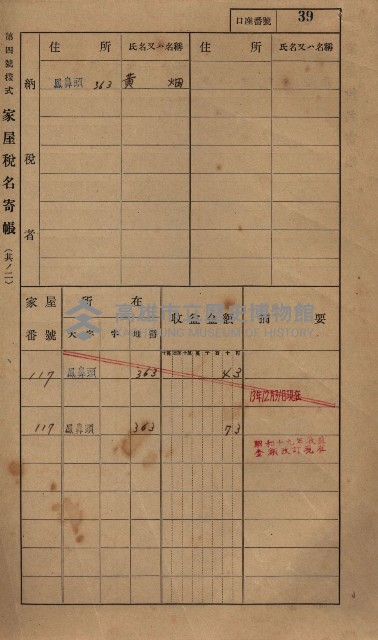 口座番號 39
第四號樣式 家屋稅名寄帳（其ノ二）
納稅者
住所 氏名又ハ名稱 住所 氏名又ハ名稱
鳳鼻頭 363 黃
家屋番號 所在 大字 字 地番 收益金額 摘要
高雄市立歷史博物館
KAOHSIUNG MUSEUM OF HISTORY
117 鳳鼻頭 363 43
13年12月31日現在
117 鳳鼻頭 363 73
昭和十九年收益
金額改訂